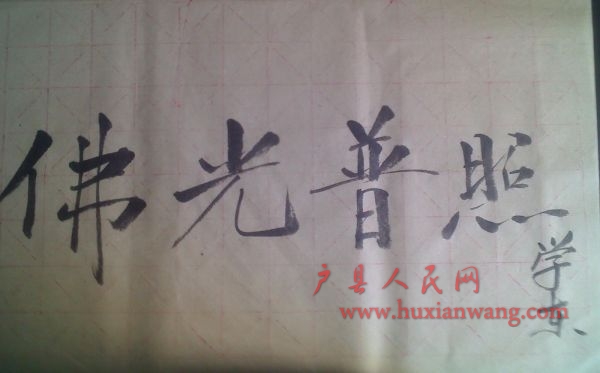 佛光普照
学东
户县人民网
www.huxianwang.com